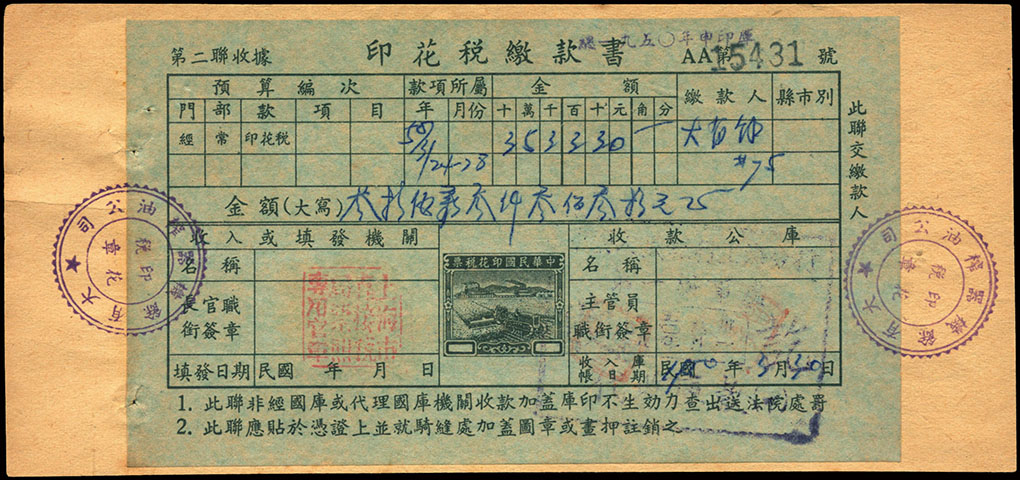 一九五〇年申印库
第二聯收據 印花税繳款書 AA第15431號
預算編次 款項所屬 金額 繳款人 縣市別
門 部 款 項 目 年 月份 十 萬 千 百 十 元 角 分
經 常 印花税 50/3/24-28 3 5 3 3 3 0 大有
#75
金額(大寫) 叁拾伍萬叁仟叁佰叁拾元
收入或填發機關 收款公庫
名稱 名稱
中華民國印花税票
長官職銜簽章 主管員職銜簽章
填發日期 民國 年 月 日 收入庫帳日期 民國1950年3月30日
1. 此聯非經國庫或代理國庫機關收款加蓋庫印不生効力查出送法院處罰
2. 此聯應貼於憑證上並就騎縫處加蓋圖章或畫押註銷之
此聯交繳款人
大有餘機器榨油公司
印花税章
大有餘機器榨油公司
印花税章